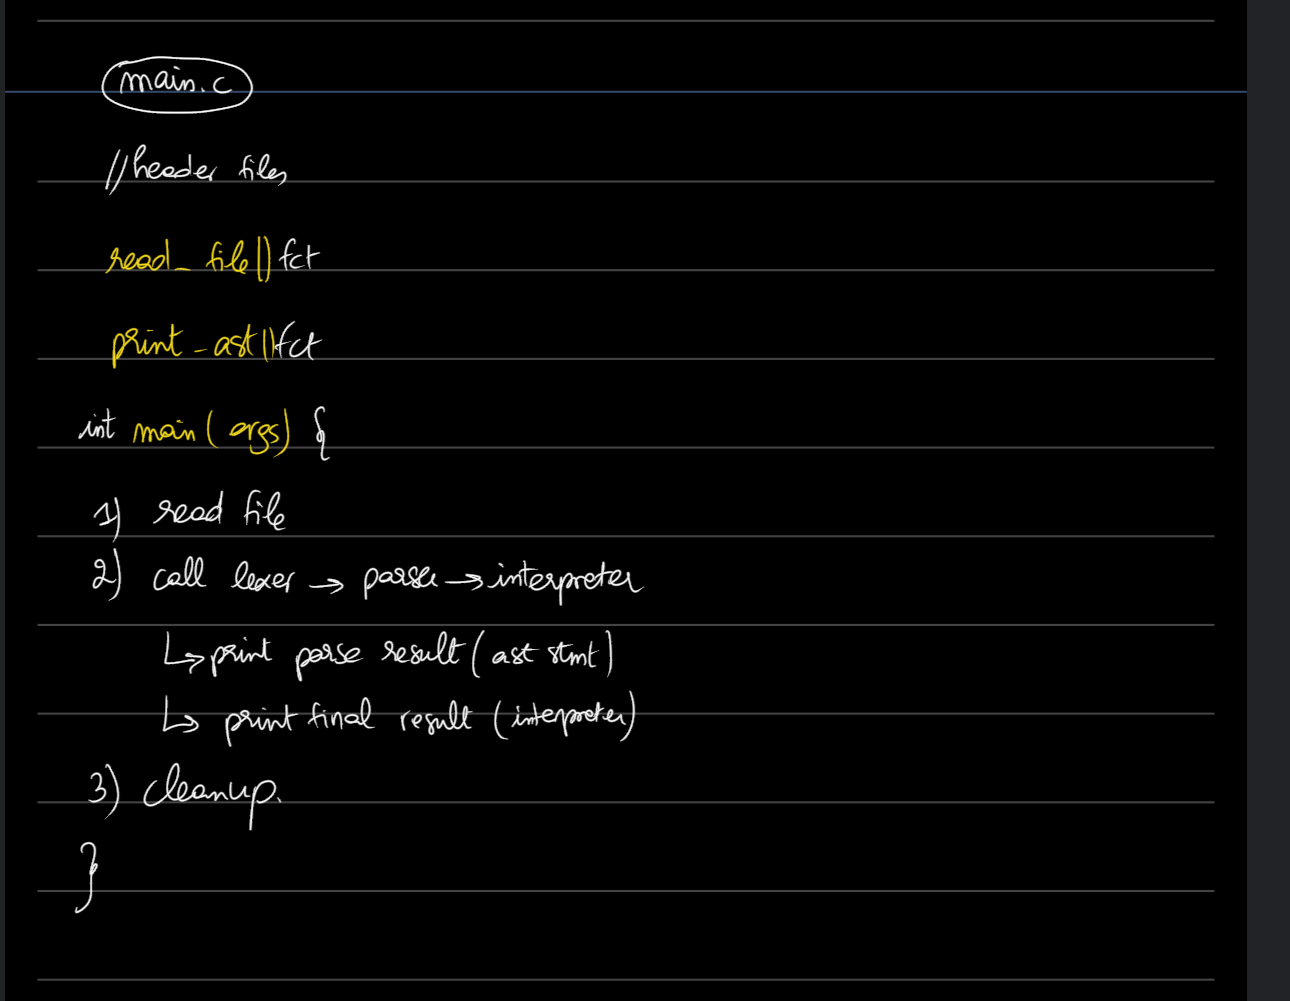 main.c
//header files
read_file() fct
print_ast() fct
int main(args) {
1) read file
2) call lexer → parser → interpreter
↳ print parse result (ast stmt)
↳ print final result (interpreter)
3) cleanup.
}